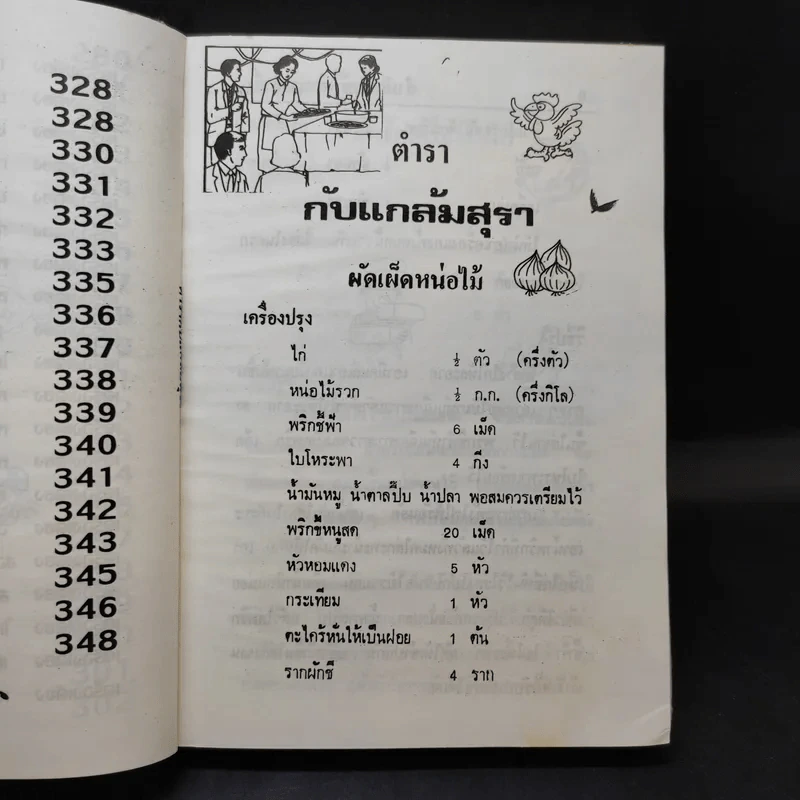 328
328
330
331
332
333
335
336
337
338
339
340
341
342
343
345
346
348
ตำรา
กับแกล้มสุรา
ผัดเผ็ดหน่อไม้
เครื่องปรุง
ไก่ ½ ตัว (ครึ่งตัว)
หน่อไม้รวก ½ ก.ก. (ครึ่งกิโล)
พริกชี้ฟ้า 6 เม็ด
ใบโหระพา 4 กิ่ง
น้ำมันหมู น้ำตาลปี๊บ น้ำปลา พอสมควรเตรียมไว้
พริกขี้หนูสด 20 เม็ด
หัวหอมแดง 5 หัว
กระเทียม 1 หัว
ตะไคร้หั่นให้เป็นฝอย 1 ต้น
รากผักชี 4 ราก